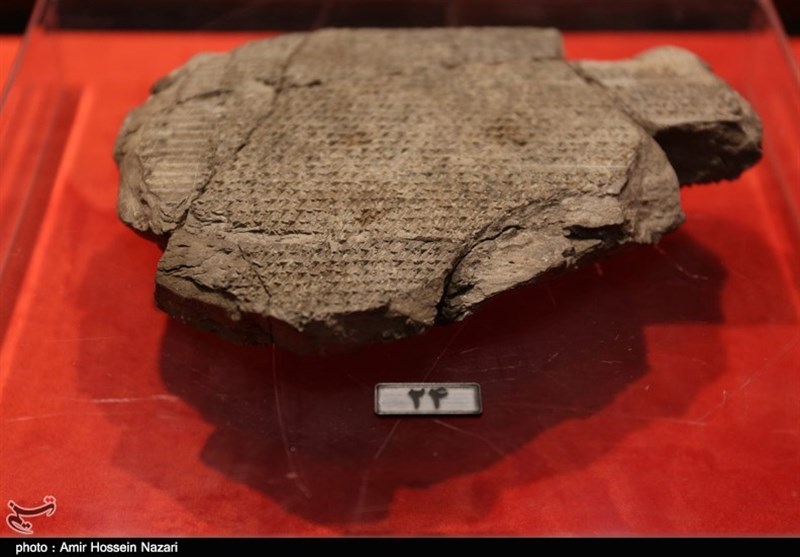 ۲۴
تسنیم
photo : Amir Hossein Nazari